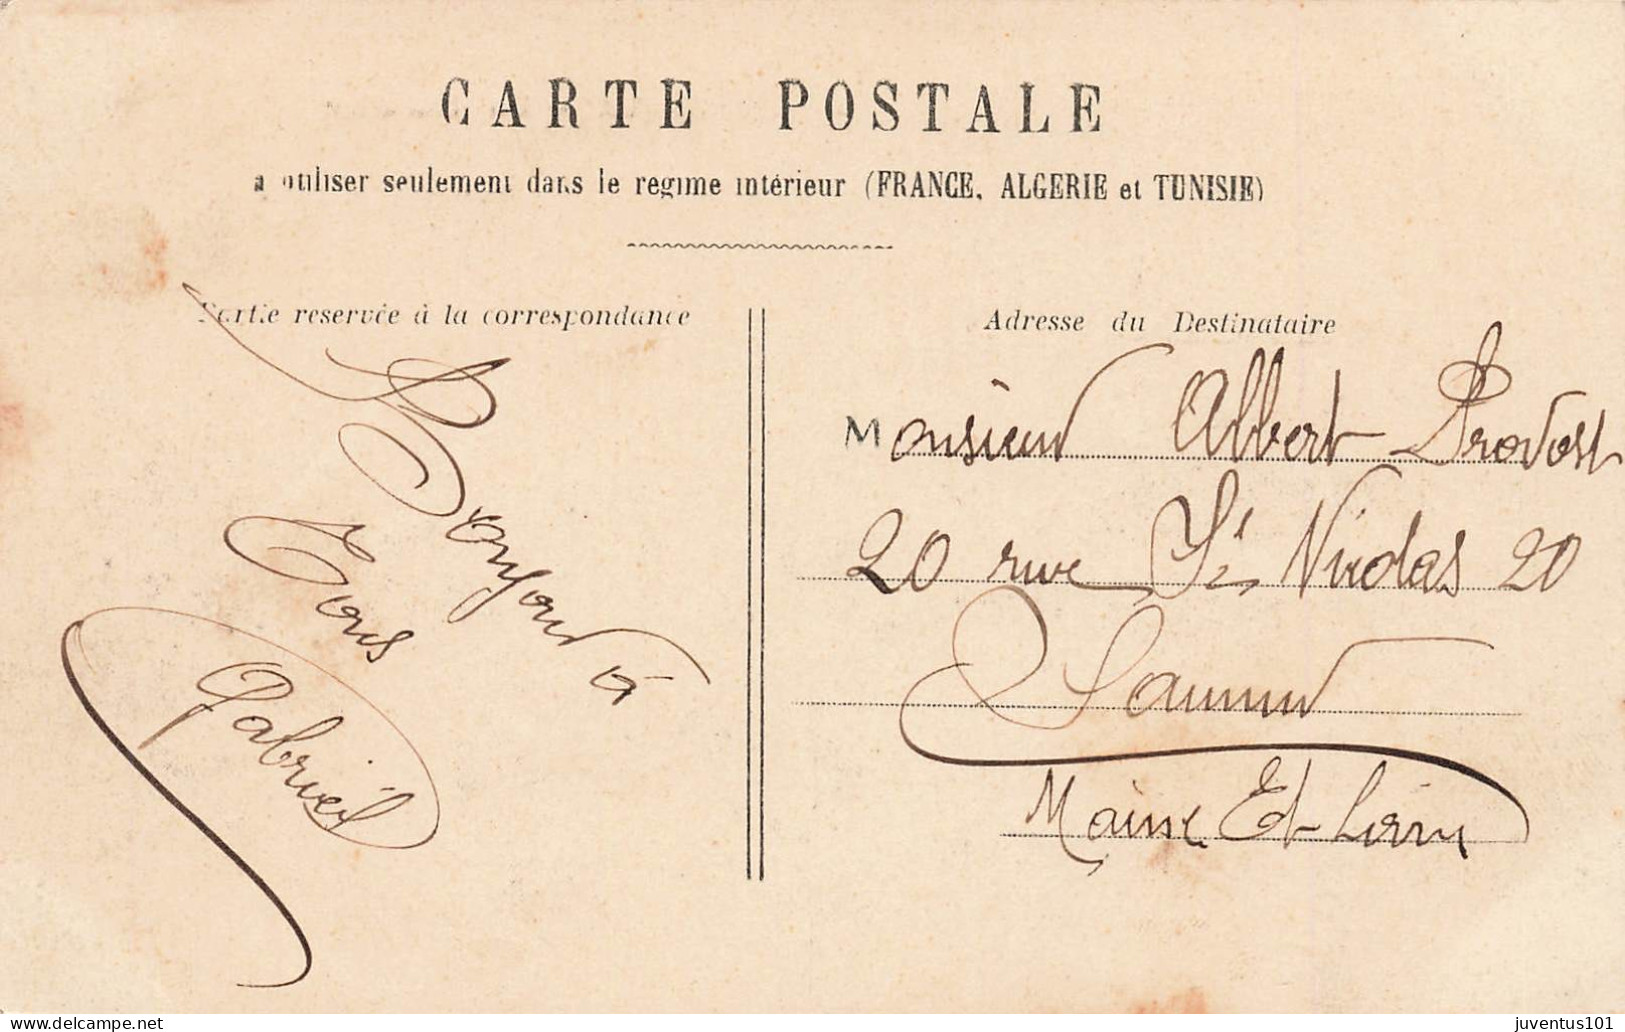 CARTE POSTALE
a utiliser seulement dans le regime intérieur (FRANCE, ALGERIE et TUNISIE)
Partie reservée à la correspondance
Bonjour à
Tous
Gabrieil
Adresse du Destinataire
Monsieur Albert Provost
20 rue St Nicolas 20
Saumur
Maine Et Loire
delcampe.net
juventus101